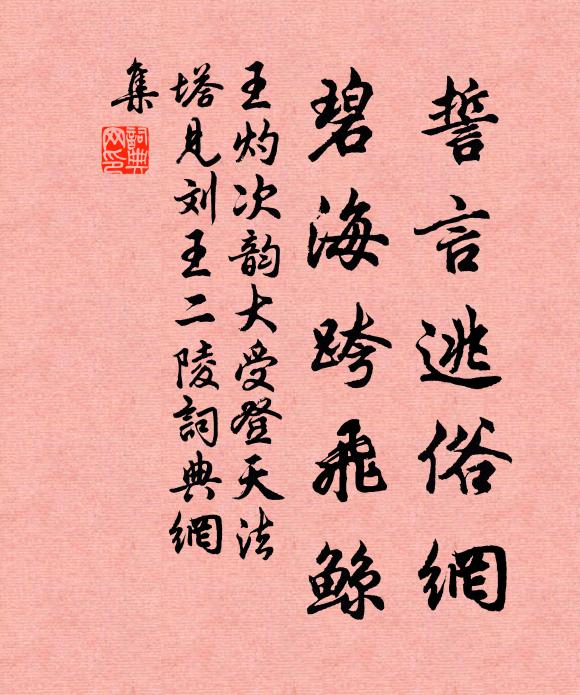 誓言逃俗網
碧海跨飛鯨
王灼次韵大受登天法
塔見刘王二陵詞典網
集
詞典網印